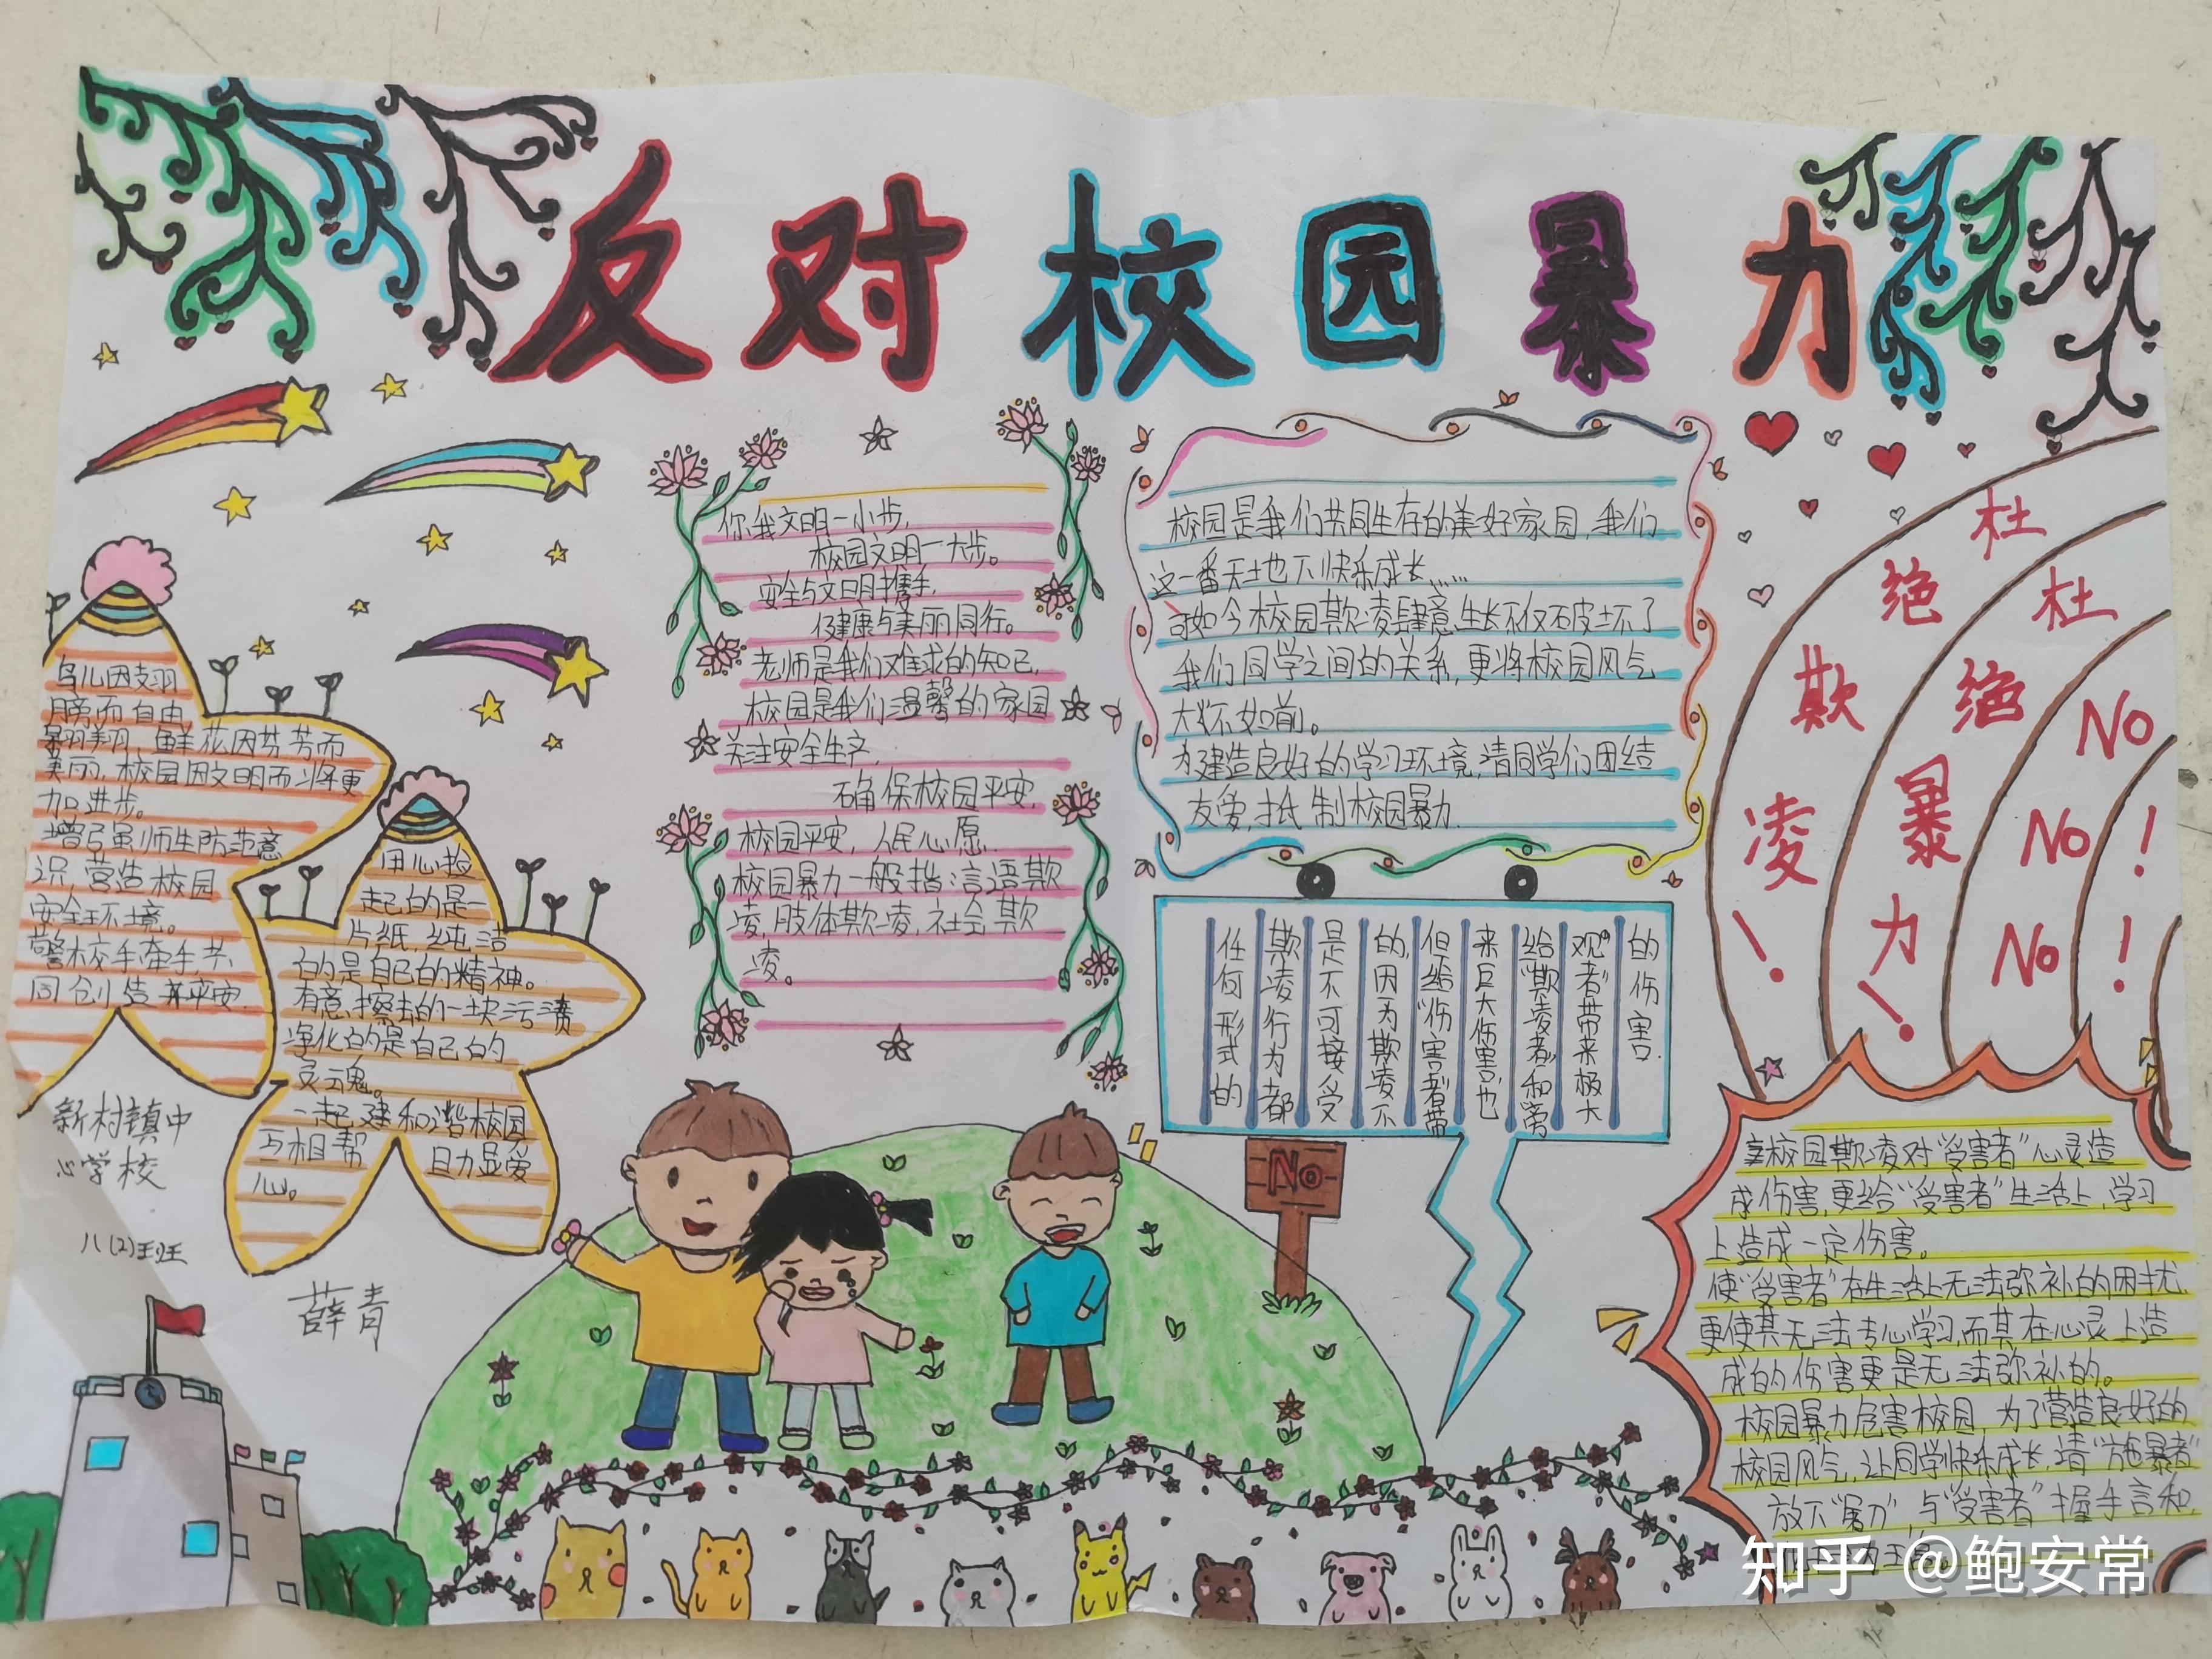 反对校园暴力
鸟儿因翅
膀而自由
翱翔，鲜花因芬芳而
美丽，校园因文明而将更
加进步。
增强师生防范意
识，营造校园
安全环境。
警校手牵手共
同创造平安
用心捡
起的是一
片纸，纯洁
的是自己的精神。
有意擦去的一块污渍
净化的是自己的
灵魂。
一起建和谐校园
互相帮
且力显爱
心。
新村镇中
心学校
八(2)班
薛青
你我文明一小步，
校园文明一大步。
安全与文明携手，
健康与美丽同行。
老师是我们难求的知己，
校园是我们温馨的家园
关注安全生产，
确保校园平安，
校园平安，人民心愿.
校园暴力一般指：言语欺
凌，肢体欺凌，社会欺
凌。
校园是我们共同生存的美好家园，我们
这一番天地下快乐成长……
可如今校园欺凌肆意生长不仅破坏了
我们同学之间的关系，更将校园风气
大不如前。
为建造良好的学习环境，请同学们团结
友爱，抵制校园暴力.
任何形式的
欺凌行为都
是不可接受
的，因为欺凌不
但给"伤害者"带
来巨大伤害，也
给"欺凌者"和"旁
观者"带来极大
的伤害.
No
杜绝欺凌！
杜绝暴力！
No No No
！！
校园欺凌对"受害者"心灵造
成伤害，更给"受害者"生活上，学习
上造成一定伤害。
使"受害者"在生活上无法弥补的困扰，
更使其无法专心学习，而其在心灵上造
成的伤害更是无法弥补的。
校园暴力危害校园，为了营造良好的
校园风气，让同学快乐成长，请"施暴者"
放下"屠刀"，与"受害者"握手言和，
知乎 @鲍安常